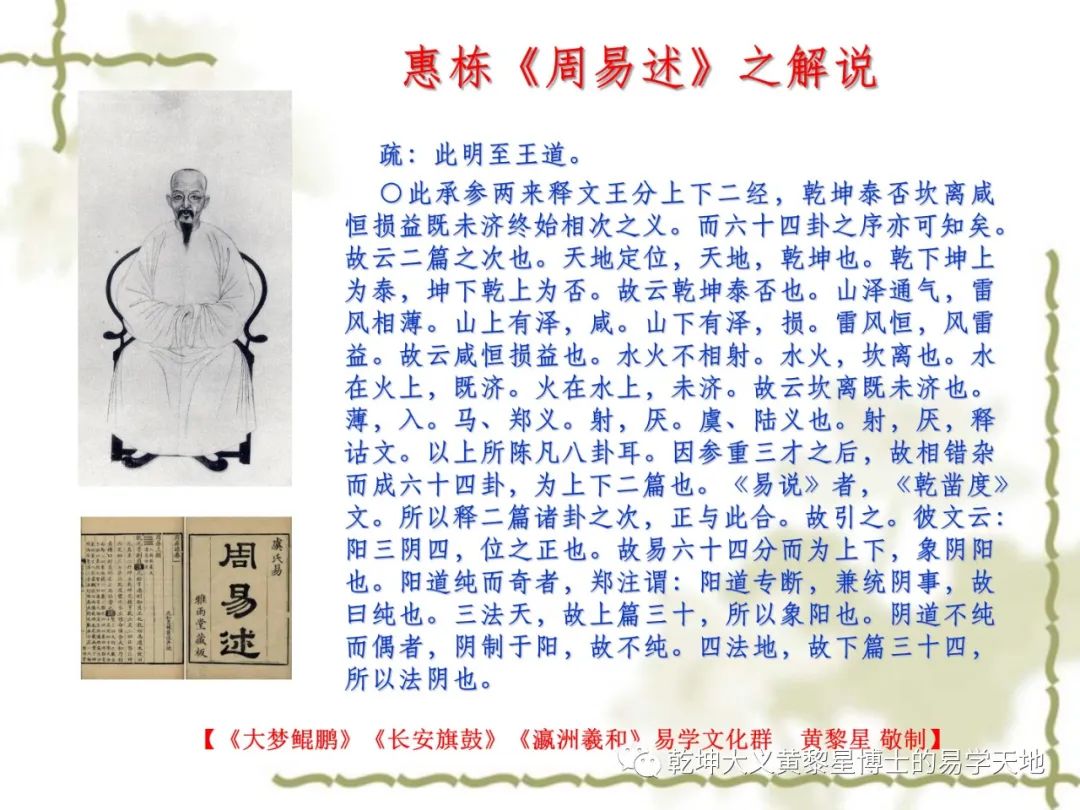 惠栋《周易述》之解说
疏：此明至王道。
〇此承参两来释文王分上下二经，乾坤泰否坎离咸
恒损益既未济终始相次之义。而六十四卦之序亦可知矣。
故云二篇之次也。天地定位，天地，乾坤也。乾下坤上
为泰，坤下乾上为否。故云乾坤泰否也。山泽通气，雷
风相薄。山上有泽，咸。山下有泽，损。雷风恒，风雷
益。故云咸恒损益也。水火不相射。水火，坎离也。水
在火上，既济。火在水上，未济。故云坎离既未济也。
薄，入。马、郑义。射，厌。虞、陆义也。射，厌，释
诂文。以上所陈凡八卦耳。因参重三才之后，故相错杂
而成六十四卦，为上下二篇也。《易说》者，《乾凿度》
文。所以释二篇诸卦之次，正与此合。故引之。彼文云：
阳三阴四，位之正也。故易六十四分而为上下，象阴阳
也。阳道纯而奇者，郑注谓：阳道专断，兼统阴事，故
曰纯也。三法天，故上篇三十，所以象阳也。阴道不纯
而偶者，阴制于阳，故不纯。四法地，故下篇三十四，
所以法阴也。
虞氏易
周易述
雅雨堂藏板
【《大梦鲲鹏》《长安旗鼓》《瀛洲羲和》易学文化群 黄黎星 敬制】
乾坤大义黄黎星博士的易学天地